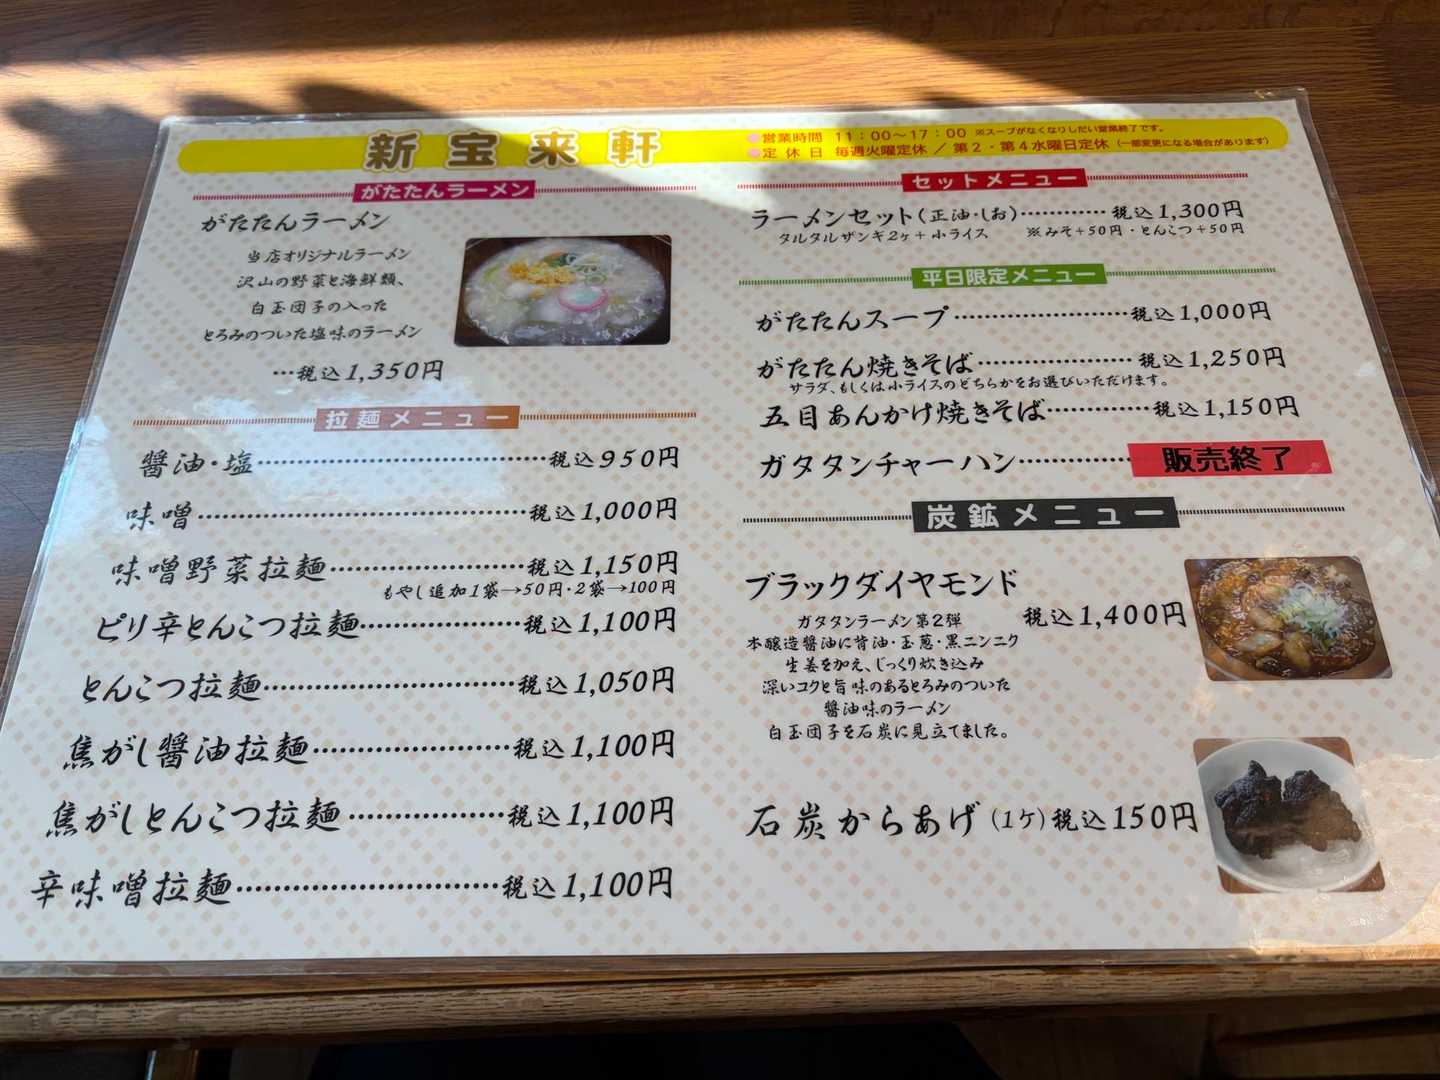 新宝来軒
営業時間 11：00～17：00 ※スープがなくなりしだい営業終了です。
定休日 毎週火曜定休 ／ 第2・第4水曜日定休 （一部変更になる場合があります）
がたたんラーメン
がたたんラーメン
当店オリジナルラーメン
沢山の野菜と海鮮類、
白玉団子の入った
とろみのついた塩味のラーメン
…税込1,350円
拉麺メニュー
醤油・塩……………税込950円
味噌……………税込1,000円
味噌野菜拉麺……………税込1,150円
もやし追加1袋→50円・2袋→100円
ピリ辛とんこつ拉麺……………税込1,100円
とんこつ拉麺……………税込1,050円
焦がし醤油拉麺……………税込1,100円
焦がしとんこつ拉麺……………税込1,100円
辛味噌拉麺……………税込1,100円
セットメニュー
ラーメンセット（正油・しお）…………税込1,300円
タルタルザンギ2ヶ＋小ライス ※みそ＋50円・とんこつ＋50円
平日限定メニュー
がたたんスープ……………税込1,000円
がたたん焼きそば……………税込1,250円
サラダ、もしくは小ライスのどちらかをお選びいただけます。
五目あんかけ焼きそば…………税込1,150円
ガタタンチャーハン…………販売終了
炭鉱メニュー
ブラックダイヤモンド
税込1,400円
ガタタンラーメン第2弾
本醸造醤油に背油・玉葱・黒ニンニク
生姜を加え、じっくり炊き込み
深いコクと旨味のあるとろみのついた
醤油味のラーメン
白玉団子を石炭に見立てました。
石炭からあげ（1ケ）税込150円